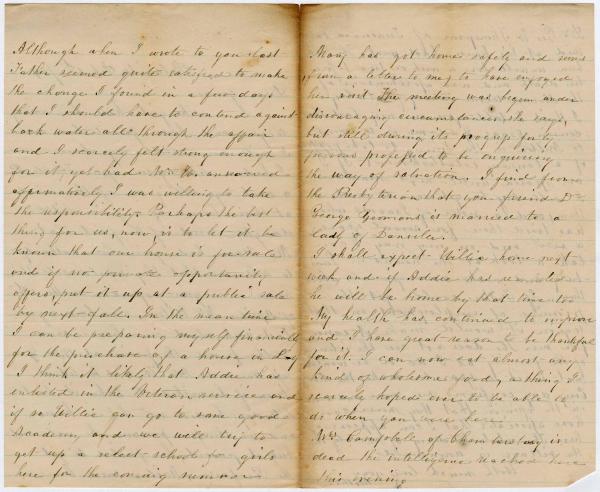 Although when I wrote to you last
Father seemed quite satisfied to make
the change I found in a few days
that I should have to contend against
back water all through the affair
and I scarcely felt strong enough
for it yet had Mr. answered
affirmatively I was willing to take
the responsibility. Perhaps the best
thing for us, now, is to let it be
known that our house is for sale
and if no private opportunity
offers, put it up at a public sale
by next fall. In the mean time
I can be preparing myself financially
for the purchase of a house in
I think it likely that Addie has
enlisted in the Veteran service and
if so Willie can go to some good
Academy and we will try to
get up a select school for girls
here for the coming summer
Mary has got home safely and seems
from a letter to me, to have enjoyed
her visit The meeting was begun under
discouraging circumstances she says,
but still during its progress forty
persons professed to be enquiring
the way of salvation. I find from
the Presbyterian that you friend Dr.
George is married to a
lady of Danville.
I shall expect Willie home next
week and if Addie has
he will be home by that time too
My health has continued to improve
and I have great reason to be thankful
for it. I can now eat almost any
kind of wholesome food, a thing I
scarcely hoped ever to be able to
do when you were here
Campbell of Chambersburg is
dead the intelligence reached here
this evening